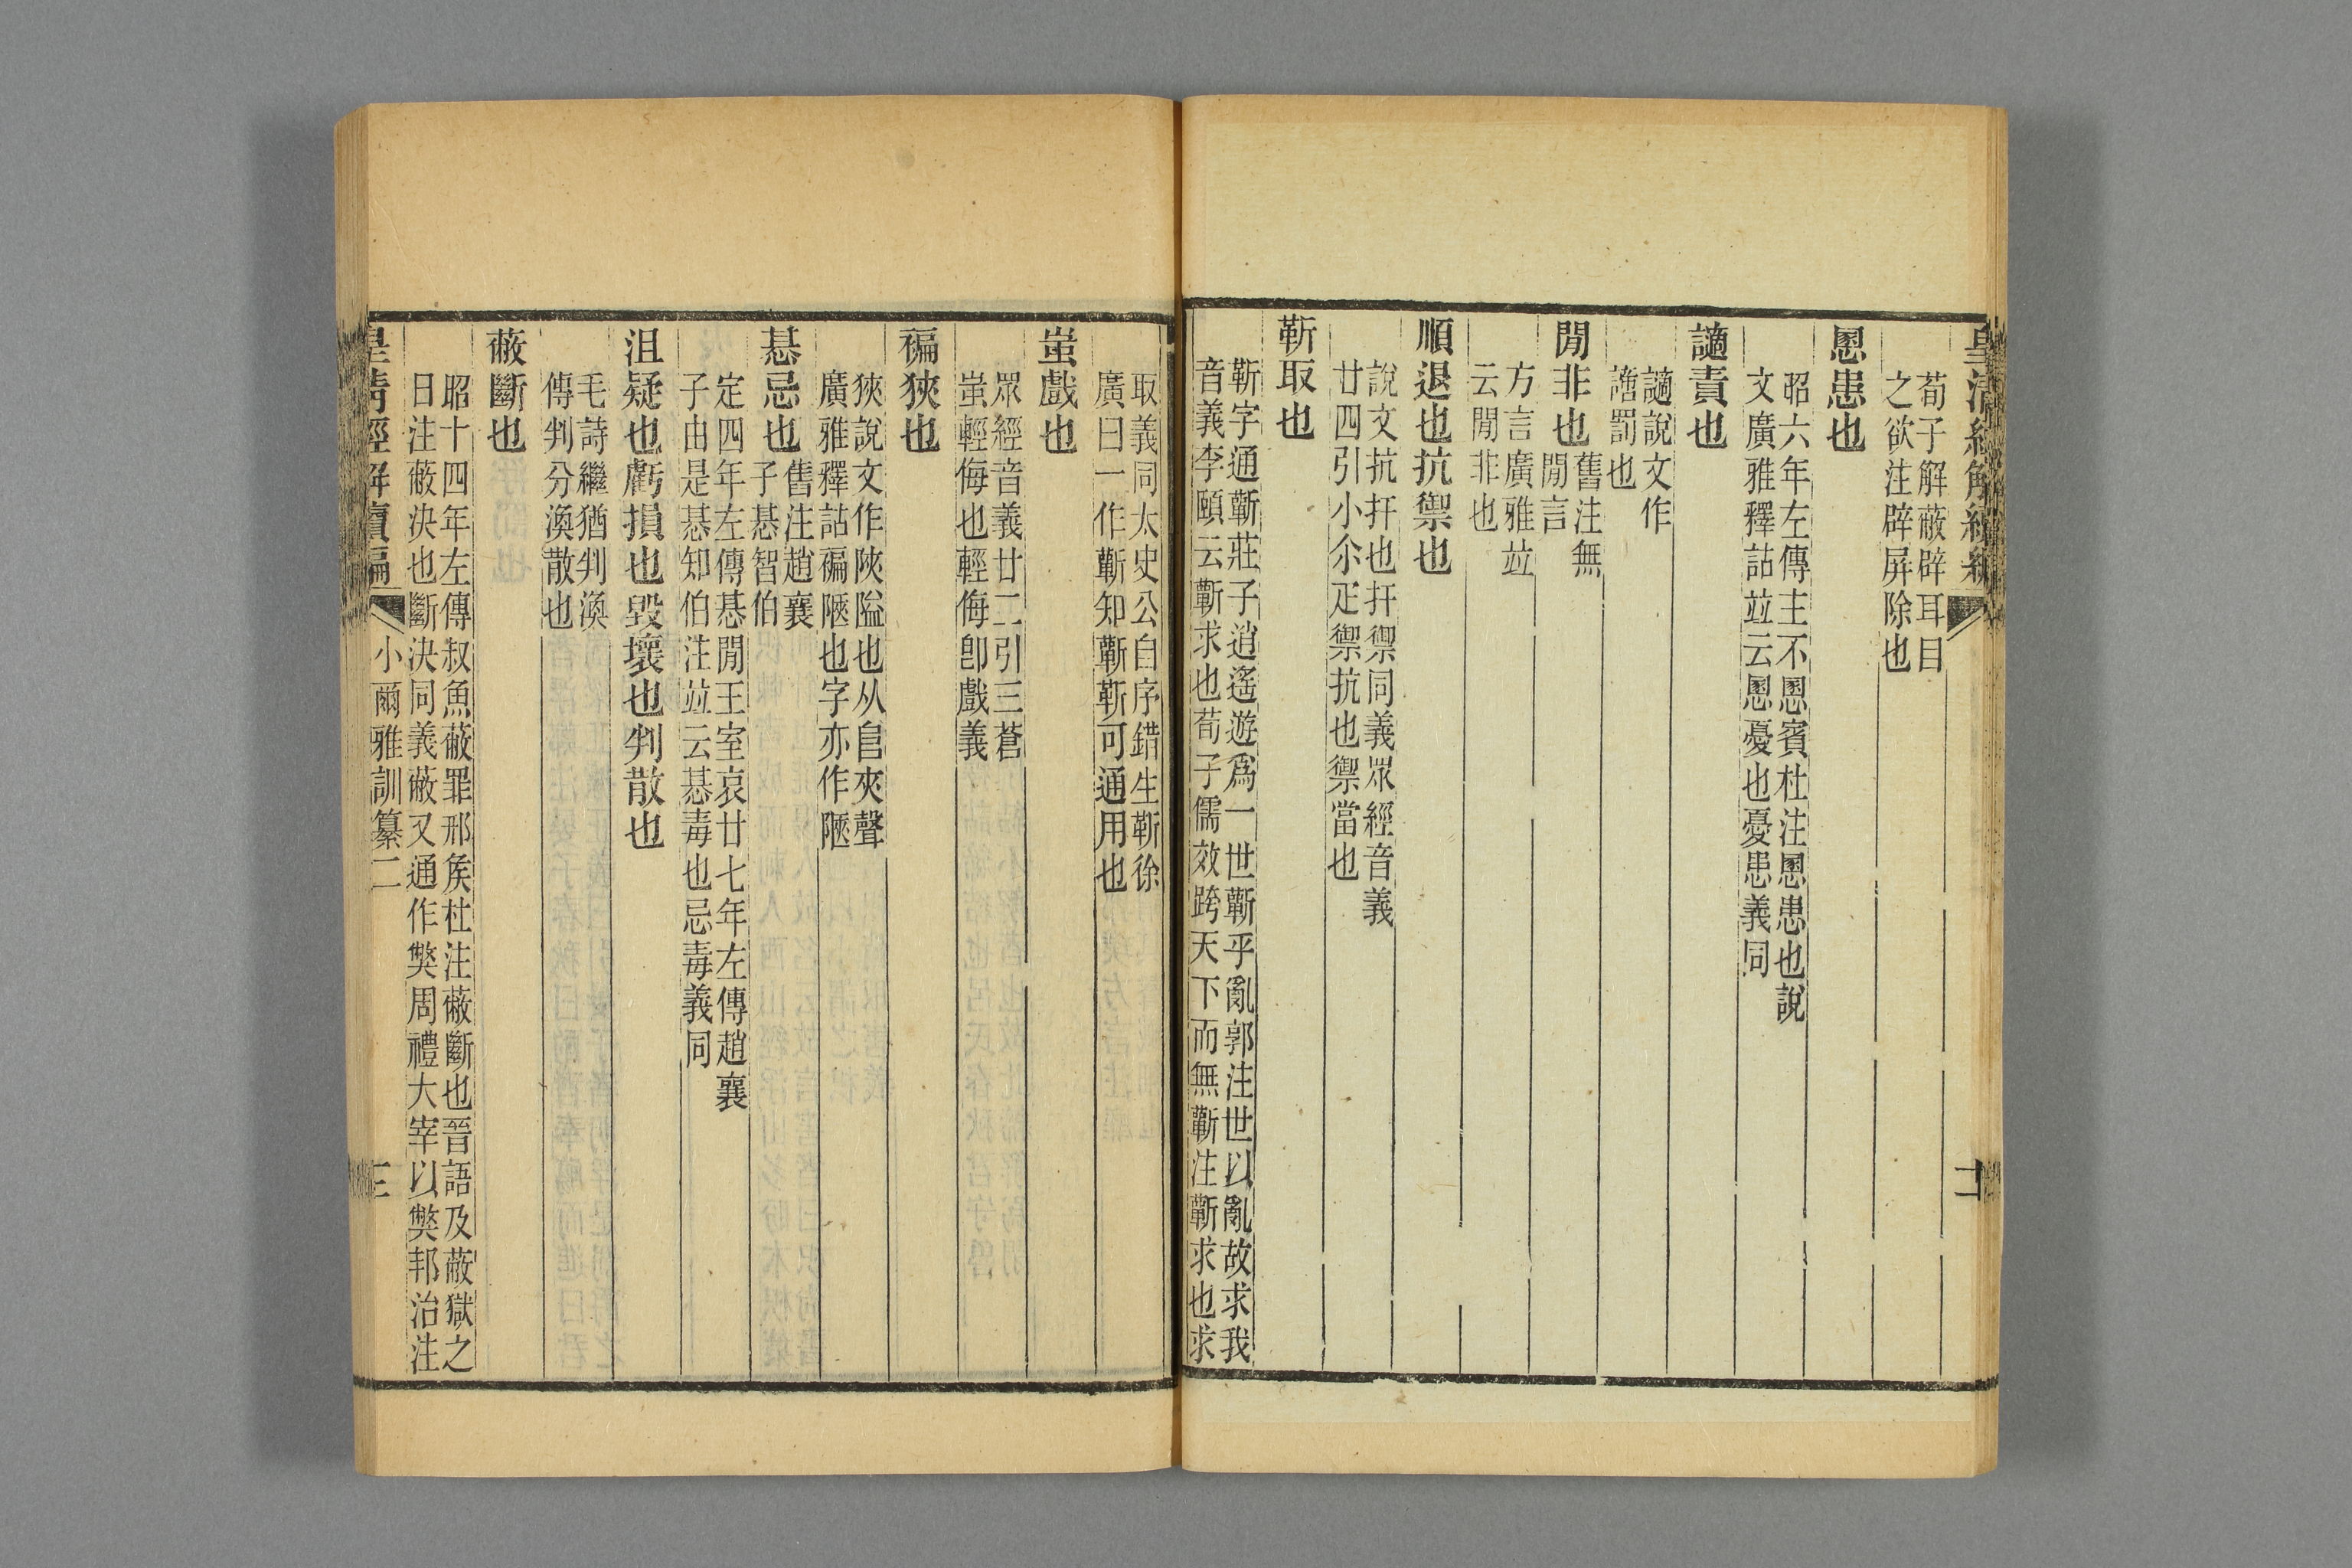 荀子解蔽辟耳目
之欲注辟屏除也
慁患也
昭六年左傳主不慁賓杜注慁患也說
文廣雅釋詁竝云慁憂也憂患義同
讁責也
讁說文作
讁罰也
閒非也舊注無
閒言
方言廣雅竝
云閒非也
順退也抗禦也
說文抗扞也扞禦同義眾經音義
廿四引小尒疋禦抗也禦當也
靳取也
靳字通蘄莊子逍遙遊爲一世蘄乎亂郭注世以亂故求我
音義李頤云蘄求也荀子儒效跨天下而無蘄注蘄求也求
取義同太史公自序錯生靳徐
廣曰一作蘄知蘄靳可通用也
蚩戲也
眾經音義廿二引三蒼
蚩輕侮也輕侮卽戲義
褊狹也
狹說文作陜隘也从𨸏夾聲
廣雅釋詁褊陋也字亦作陋
惎忌也舊注趙襄
子惎智伯
定四年左傳惎閒王室哀廿七年左傳趙襄
子由是惎知伯注竝云惎毒也忌毒義同
沮疑也虧損也毀壞也判散也
毛詩繼猶判渙
傳判分渙散也
蔽斷也
昭十四年左傳叔魚蔽罪邢矦杜注蔽斷也晉語及蔽獄之
日注蔽決也斷決同義蔽又通作獘周禮大宰以獘邦治注
皇清經解續編
小爾雅訓纂二